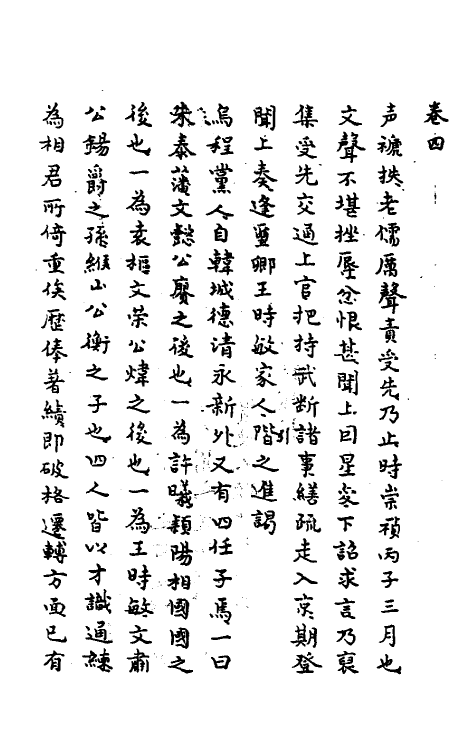 卷四
声褫挾老儒厲聲責受先乃止時崇禎丙子三月也
文聲不堪挫辱忿恨甚聞上因星变下詔求言乃裒
集受先交通上官把持武断諸事繕疏走入京期登
聞上奏逢璽卿王時敏家人階之進謁
烏程黨人自韓城德清永新外又有四任子焉一曰
朱泰藩文懿公賡之後也一為許曦穎陽相國國之
後也一為袁樞文荣公煒之後也一為王時敏文肅
公錫爵之孫緱山公衡之子也四人皆以才識通練
為相君所倚重俟歷俸著績即破格遷轉方面已有